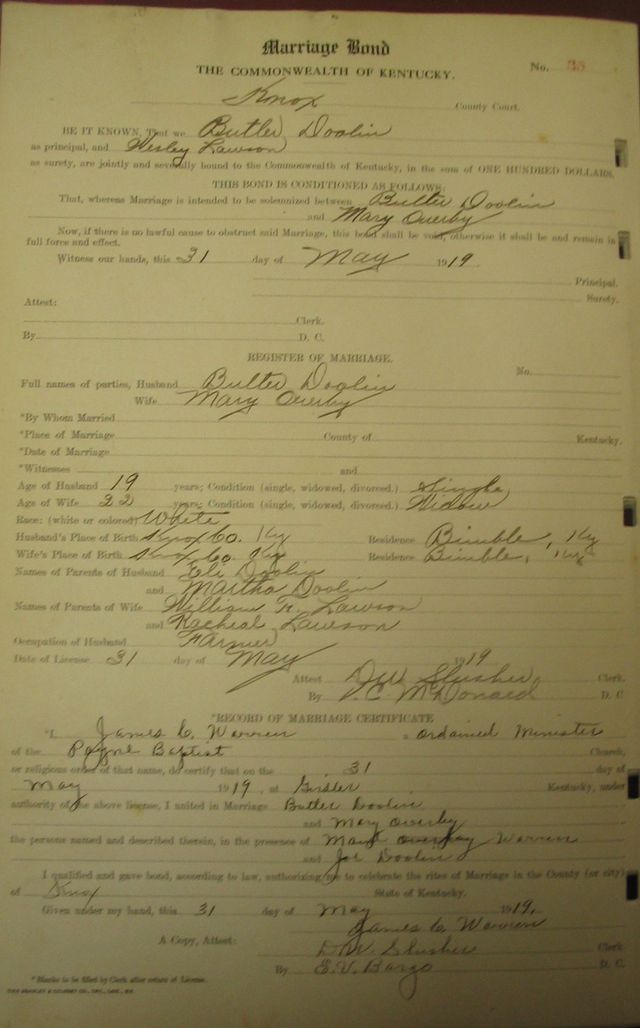 Marriage Bond
No. 35
THE COMMONWEALTH OF KENTUCKY.
Knox County Court.
BE IT KNOWN, That we Butler Doolin
as principal, and Wesley Lawson
as surety, are jointly and severally bound to the Commonwealth of Kentucky, in the sum of ONE HUNDRED DOLLARS.
THIS BOND IS CONDITIONED AS FOLLOWS:
That, whereas Marriage is intended to be solemnized between Butler Doolin
and Mary Overby
Now, if there is no lawful cause to obstruct said Marriage, this bond shall be void, otherwise it shall be and remain in
full force and effect.
Witness our hands, this 31 day of May 1919
Principal.
Attest: Surety.
Clerk.
By D. C.
REGISTER OF MARRIAGE.
No.
Full names of parties, Husband Butler Doolin
Wife Mary Overby
*By Whom Married
*Place of Marriage County of Kentucky.
*Date of Marriage
*Witnesses and
Age of Husband 19 years; Condition (single, widowed, divorced.) Single
Age of Wife 22 years; Condition (single, widowed, divorced.) Widow
Race: (white or colored) White
Husband's Place of Birth Knox Co. Ky Residence Bimble, Ky
Wife's Place of Birth Knox Co. Ky Residence Bimble, Ky
Names of Parents of Husband Eli Doolin
and Martha Doolin
Names of Parents of Wife William H. Lawson
and Racheal Lawson
Occupation of Husband Farmer
Date of License 31 day of May 1919
Attest D.W. Slusher Clerk.
By J.C. McDonald D. C
*RECORD OF MARRIAGE CERTIFICATE
*I, James C. Warren a ordained Minister
of the Payne Baptist Church,
or religious order of that name, do certify that on the 31 day of
May 1919, at Girdler Kentucky, under
authority of the above license, I united in Marriage Butler Doolin
and Mary Overley
the persons named and described therein, in the presence of Mary Warren
and Joe Doolin
I qualified and gave bond, according to law, authorizing me to celebrate the rites of Marriage in the County (or city)
of Knox State of Kentucky.
Given under my hand, this 31 day of May 1919.
James C. Warren
A Copy, Attest: D.W. Slusher Clerk
By E.V. Bargo D. C.
*Blanks to be filled by Clerk after return of License.